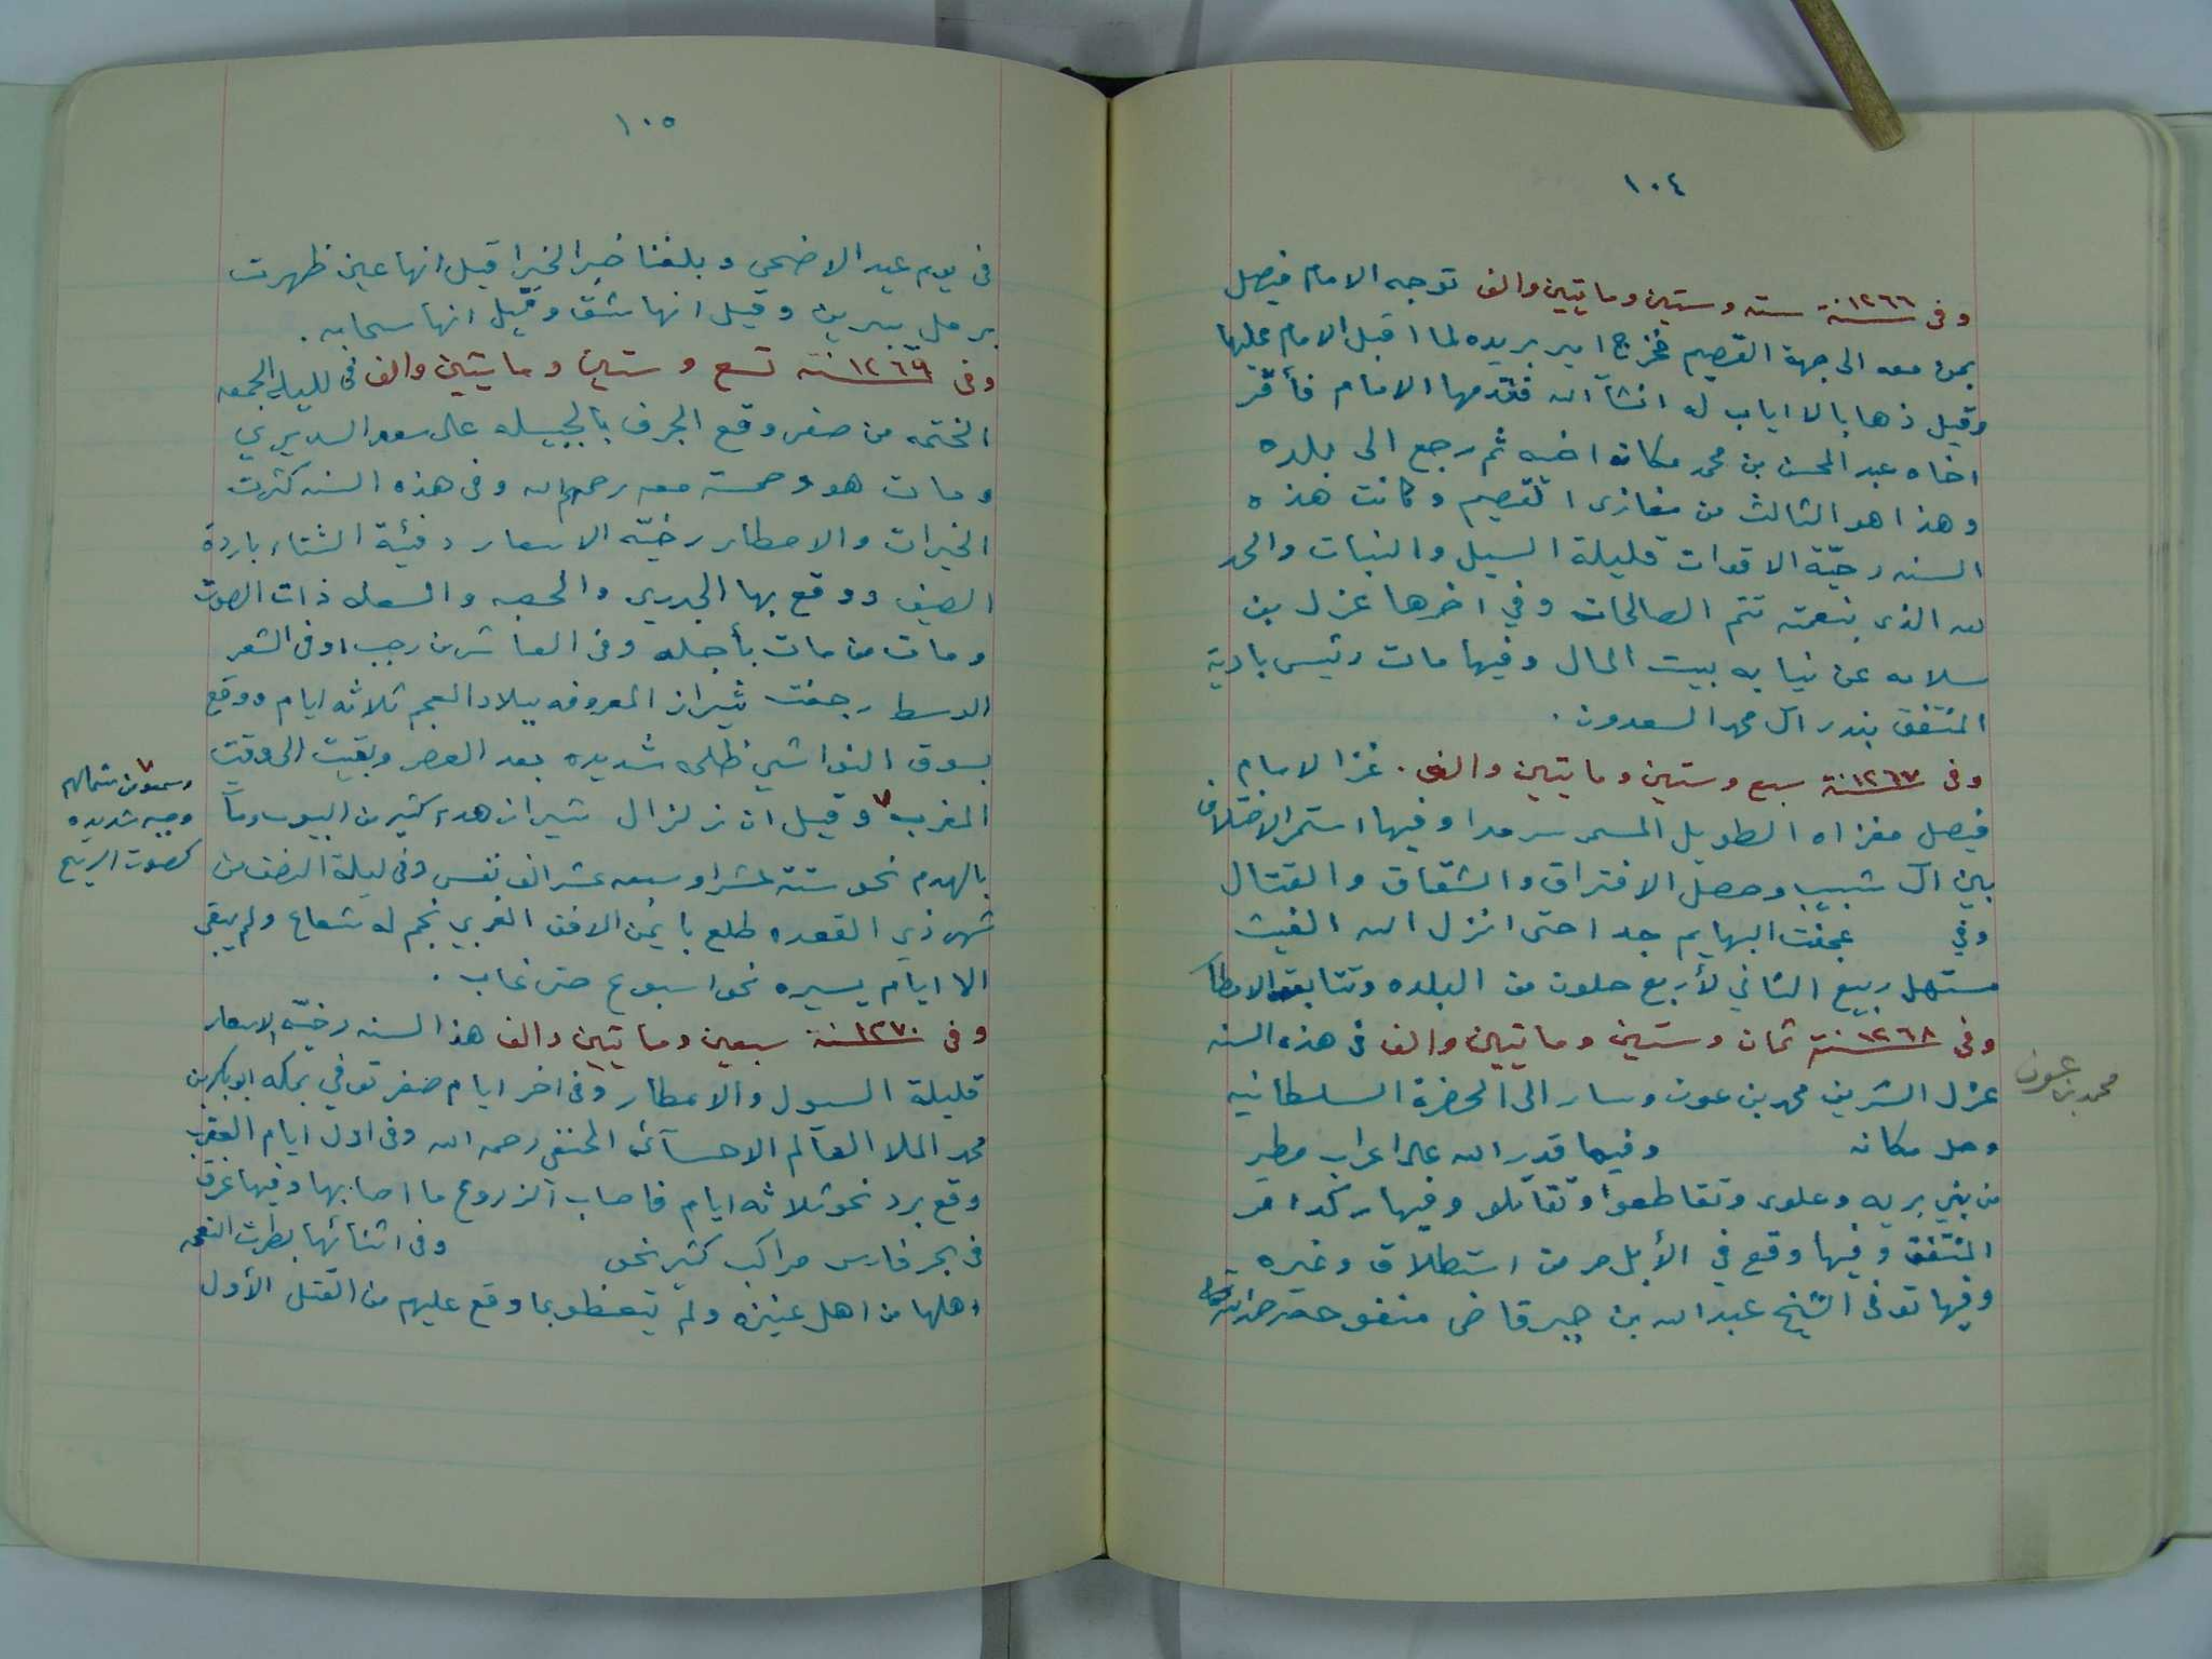 ١٠٤
وفى سنة ١٢٦٦ ستة وستين ومايتين والف توجه الامام فيصل
بمن معه الى جهة القصيم فخرج امير بريده لما اقبل الامام عليها
وقيل ذهابا لا اياب له انشآ الله فقدمها الامام فأقرّ
اخاه عبد المحسن بن محمد مكان اخيه ثم رجع الى بلده
وهذا هو الثالث من مغازى القصيم وكانت هذه
السنه رخيّة الاقوات قليلة السيل والنبات والحمد
لله الذى بنعمته تتم الصالحات وفي اخرها عزل بن
سلامه عن نيابه بيت المال وفيها مات رئيس بادية
المنتفق بندر آل محمد السعدون .
وفى سنة ١٢٦٧ سبع وستين ومايتين والف . غزا الامام
فيصل مغزاه الطويل المسمى سرمدا وفيها استمر الاختلاف
بين آل شبيب وحصل الافتراق والشقاق والقتال
وفي عجفت البهايم جدا حتى انزل الله الغيث
مستهل ربيع الثاني لأربع خلون من البلده وتتابعت الامطار
وفى سنة ١٢٦٨ ثمان وستين ومايتين والف فى هذه السنه
عزل الشريف محمد بن عون وسار الى الحضرة السلطانيه
وحل مكانه وفيها قدر الله على اعراب مطير
من بني بريه وعلوى وتقاطعوا وتقاتلو وفيها ركد امر
المنتفق وفيها وقع في الأبل مرض استطلاق وغيره
وفيها توفى الشيخ عبد الله بن جبر قاضى منفوحة رحمه الله تعالى
محمد بن عون
١٠٥
فى يوم عيد الاضحى وبلغنا خبر الخيرا قيل انها عين ظهرت
برمل يبرين وقيل انها شق وقيل انها سحابه .
وفى سنة ١٢٦٩ تسع وستين ومايتين والف فى لليلة الجمعه
الختمه من صفر وقع الجرف بالجبيله على سعد السديري
ومات هو وخمسة معه رحمهم الله وفى هذه السنه كثرت
الخيرات والامطار رخيّه الاسعار دفيئة الشتاء باردة
الصيف ووقع بها الجدري والحصبه والسعله ذات الصوت
ومات من مات بأجله وفى العاشر من رجب اوفى الشهر
الوسط رجفت شيراز المعروفه ببلاد العجم ثلاثه ايام ووقع
بسوق النواشي ظلمه شديده بعد العصر وبقيت الى وقيت
المغرب ٧ وقيل ان زلزال شيراز هدم كثير من البيوت ومات
بالهدم نحو ستة عشر او سبعه عشر الف نفس وفى ليلة النصف من
شهر ذي القعده طلع بايمن الافق الغربي نجم له شعاع ولم يبقى
الا ايام يسيره نحو اسبوع حتى غاب .
٧ وسمعو من شمالهم
وجبه شديده
كصوت الريح
وفى سنة ١٢٧٠ سبعين ومايتين والف هذا السنه رخيّة الاسعار
قليلة السيول والامطار وفى اخر ايام صفر توفي بمكه ابو بكر بن
محمد الملا العالم الاحسآئى الحنفي رحمه الله وفى اول ايام العقرب
وقع برد نحو ثلاثه ايام فاصاب الزروع ما اصابها وفيها غرق
فى بحر فارس مراكب كثير نحو وفى اثنائها بطرت النعمه
اهلها من اهل عنيزه ولم يتعظو بما وقع عليهم من القتل الأول